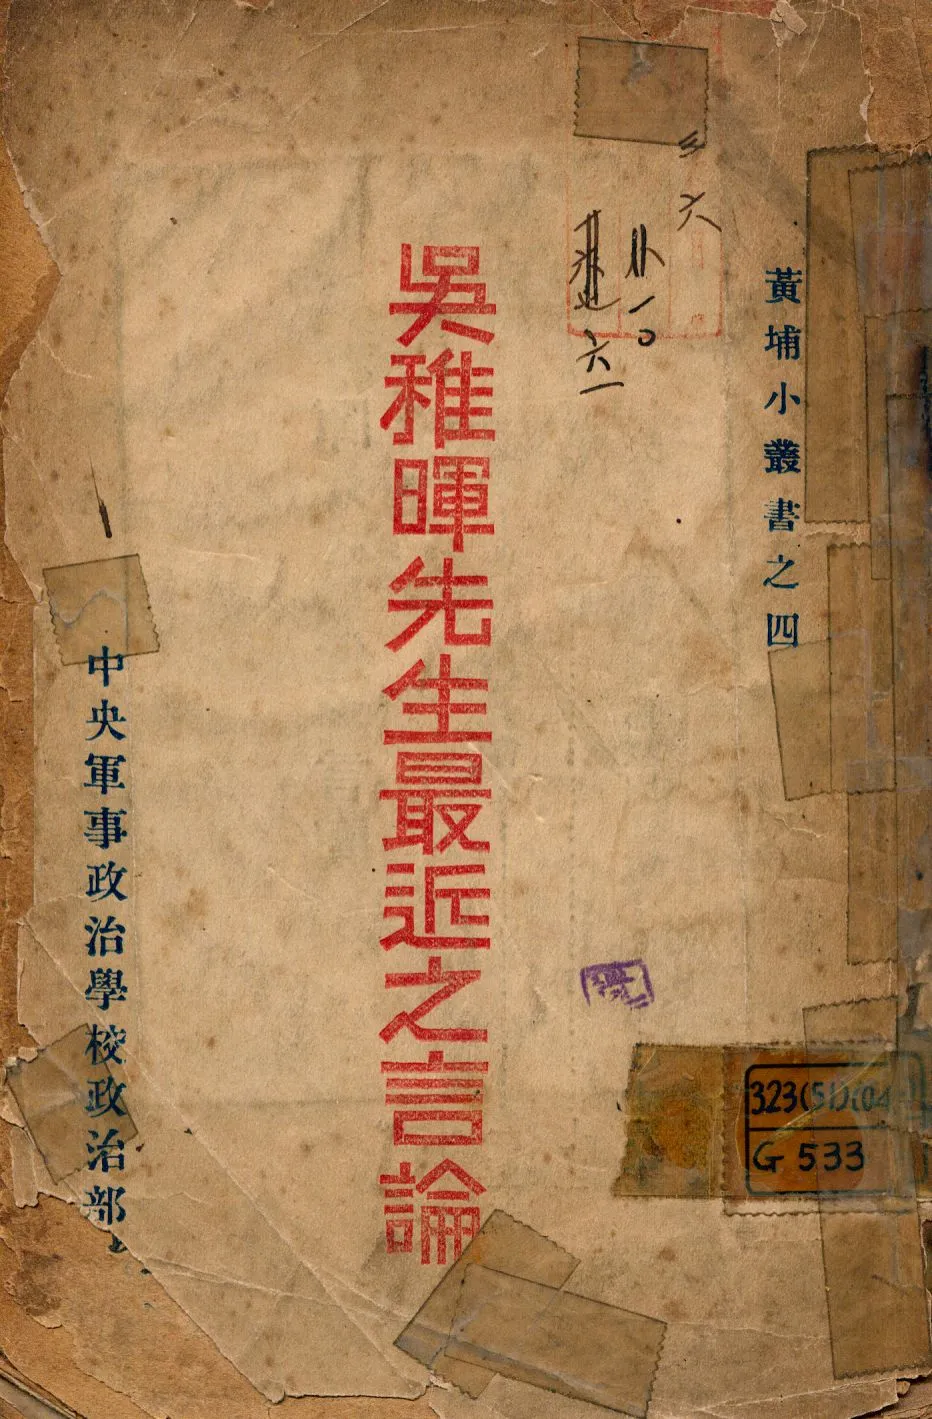 黃埔小叢書之四
吳稚暉先生最近之言論
中央軍事政治學校政治部
323(51)(04
G 533